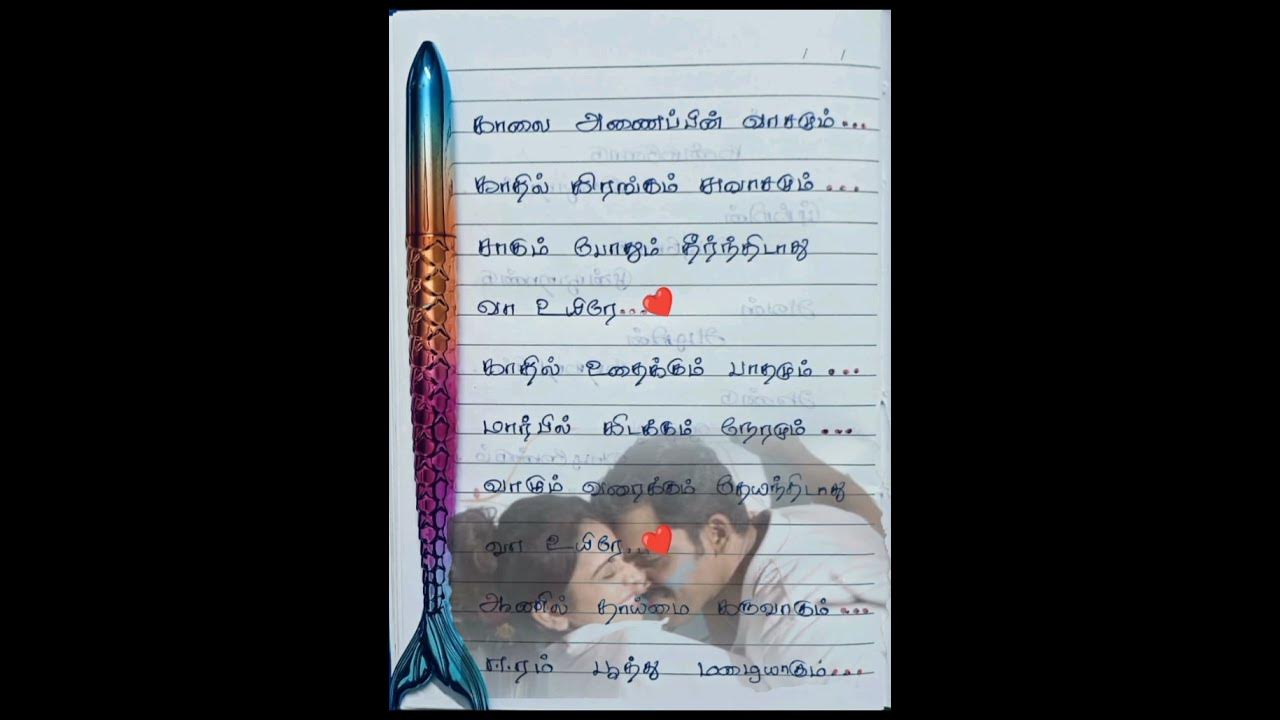 காலை அணைப்பின் வாசமும்...
காதில் கிரங்கும் சுவாசமும்...
சாகும் போதும் தீர்ந்திடாது
வா உயிரே...❤️
காதில் உதைக்கும் பாதமும்...
மார்பில் கிடக்கும் நேரமும்...
வாழும் வரைக்கும் தேயந்திடாது
வா உயிரே...❤️
ஆணில் தாய்மை கருவாகும்...
ஈரம் பூத்து மழையாகும்...